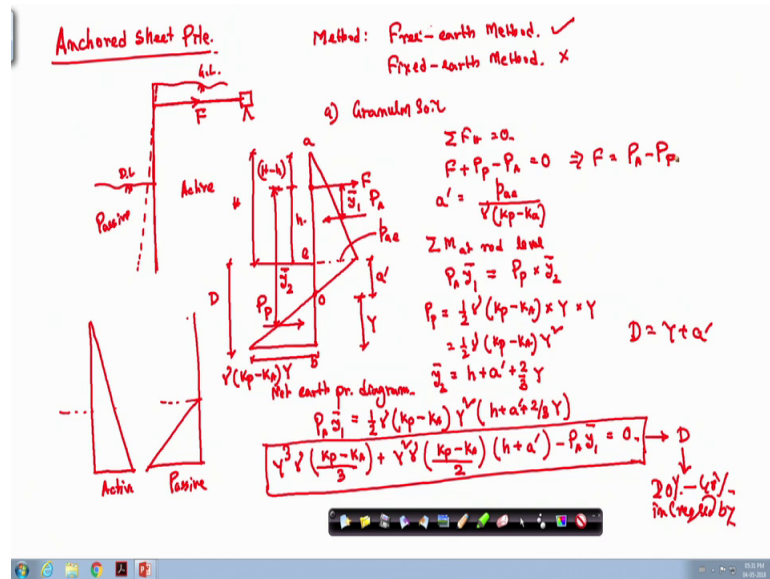 Anchored Sheet Pile.
Method: Free-earth Method. ✓
Fixed-earth Method. ×
G.L.
F
A
D.L.
Active
Passive
a) Granular Soil
a
(H-h)
F
ȳ₁
P_A
H
h.
e
p_ae
ȳ₂
a'
D
O
P_P
Y
b
γ(K_P-K_A)Y
Net earth pr. diagram.
ΣF_H = 0.
F + P_P - P_A = 0 ⇒ F = P_A - P_P.
a' = p_ae / γ(K_P-K_A)
ΣM at rod level
P_A ȳ₁ = P_P × ȳ₂
P_P = ½ γ (K_P-K_A) × Y × Y
= ½ γ (K_P-K_A) Y²
D = Y + a'
ȳ₂ = h + a' + ⅔ Y
P_A ȳ₁ = ½ γ (K_P-K_A) Y² (h + a' + 2/3 Y)
Y³ γ ((K_P-K_A)/3) + Y² γ ((K_P-K_A)/2) (h + a') - P_A ȳ₁ = 0. → D
20% - 40%
increased by
Active
Passive
05:31 PM
04-05-2018